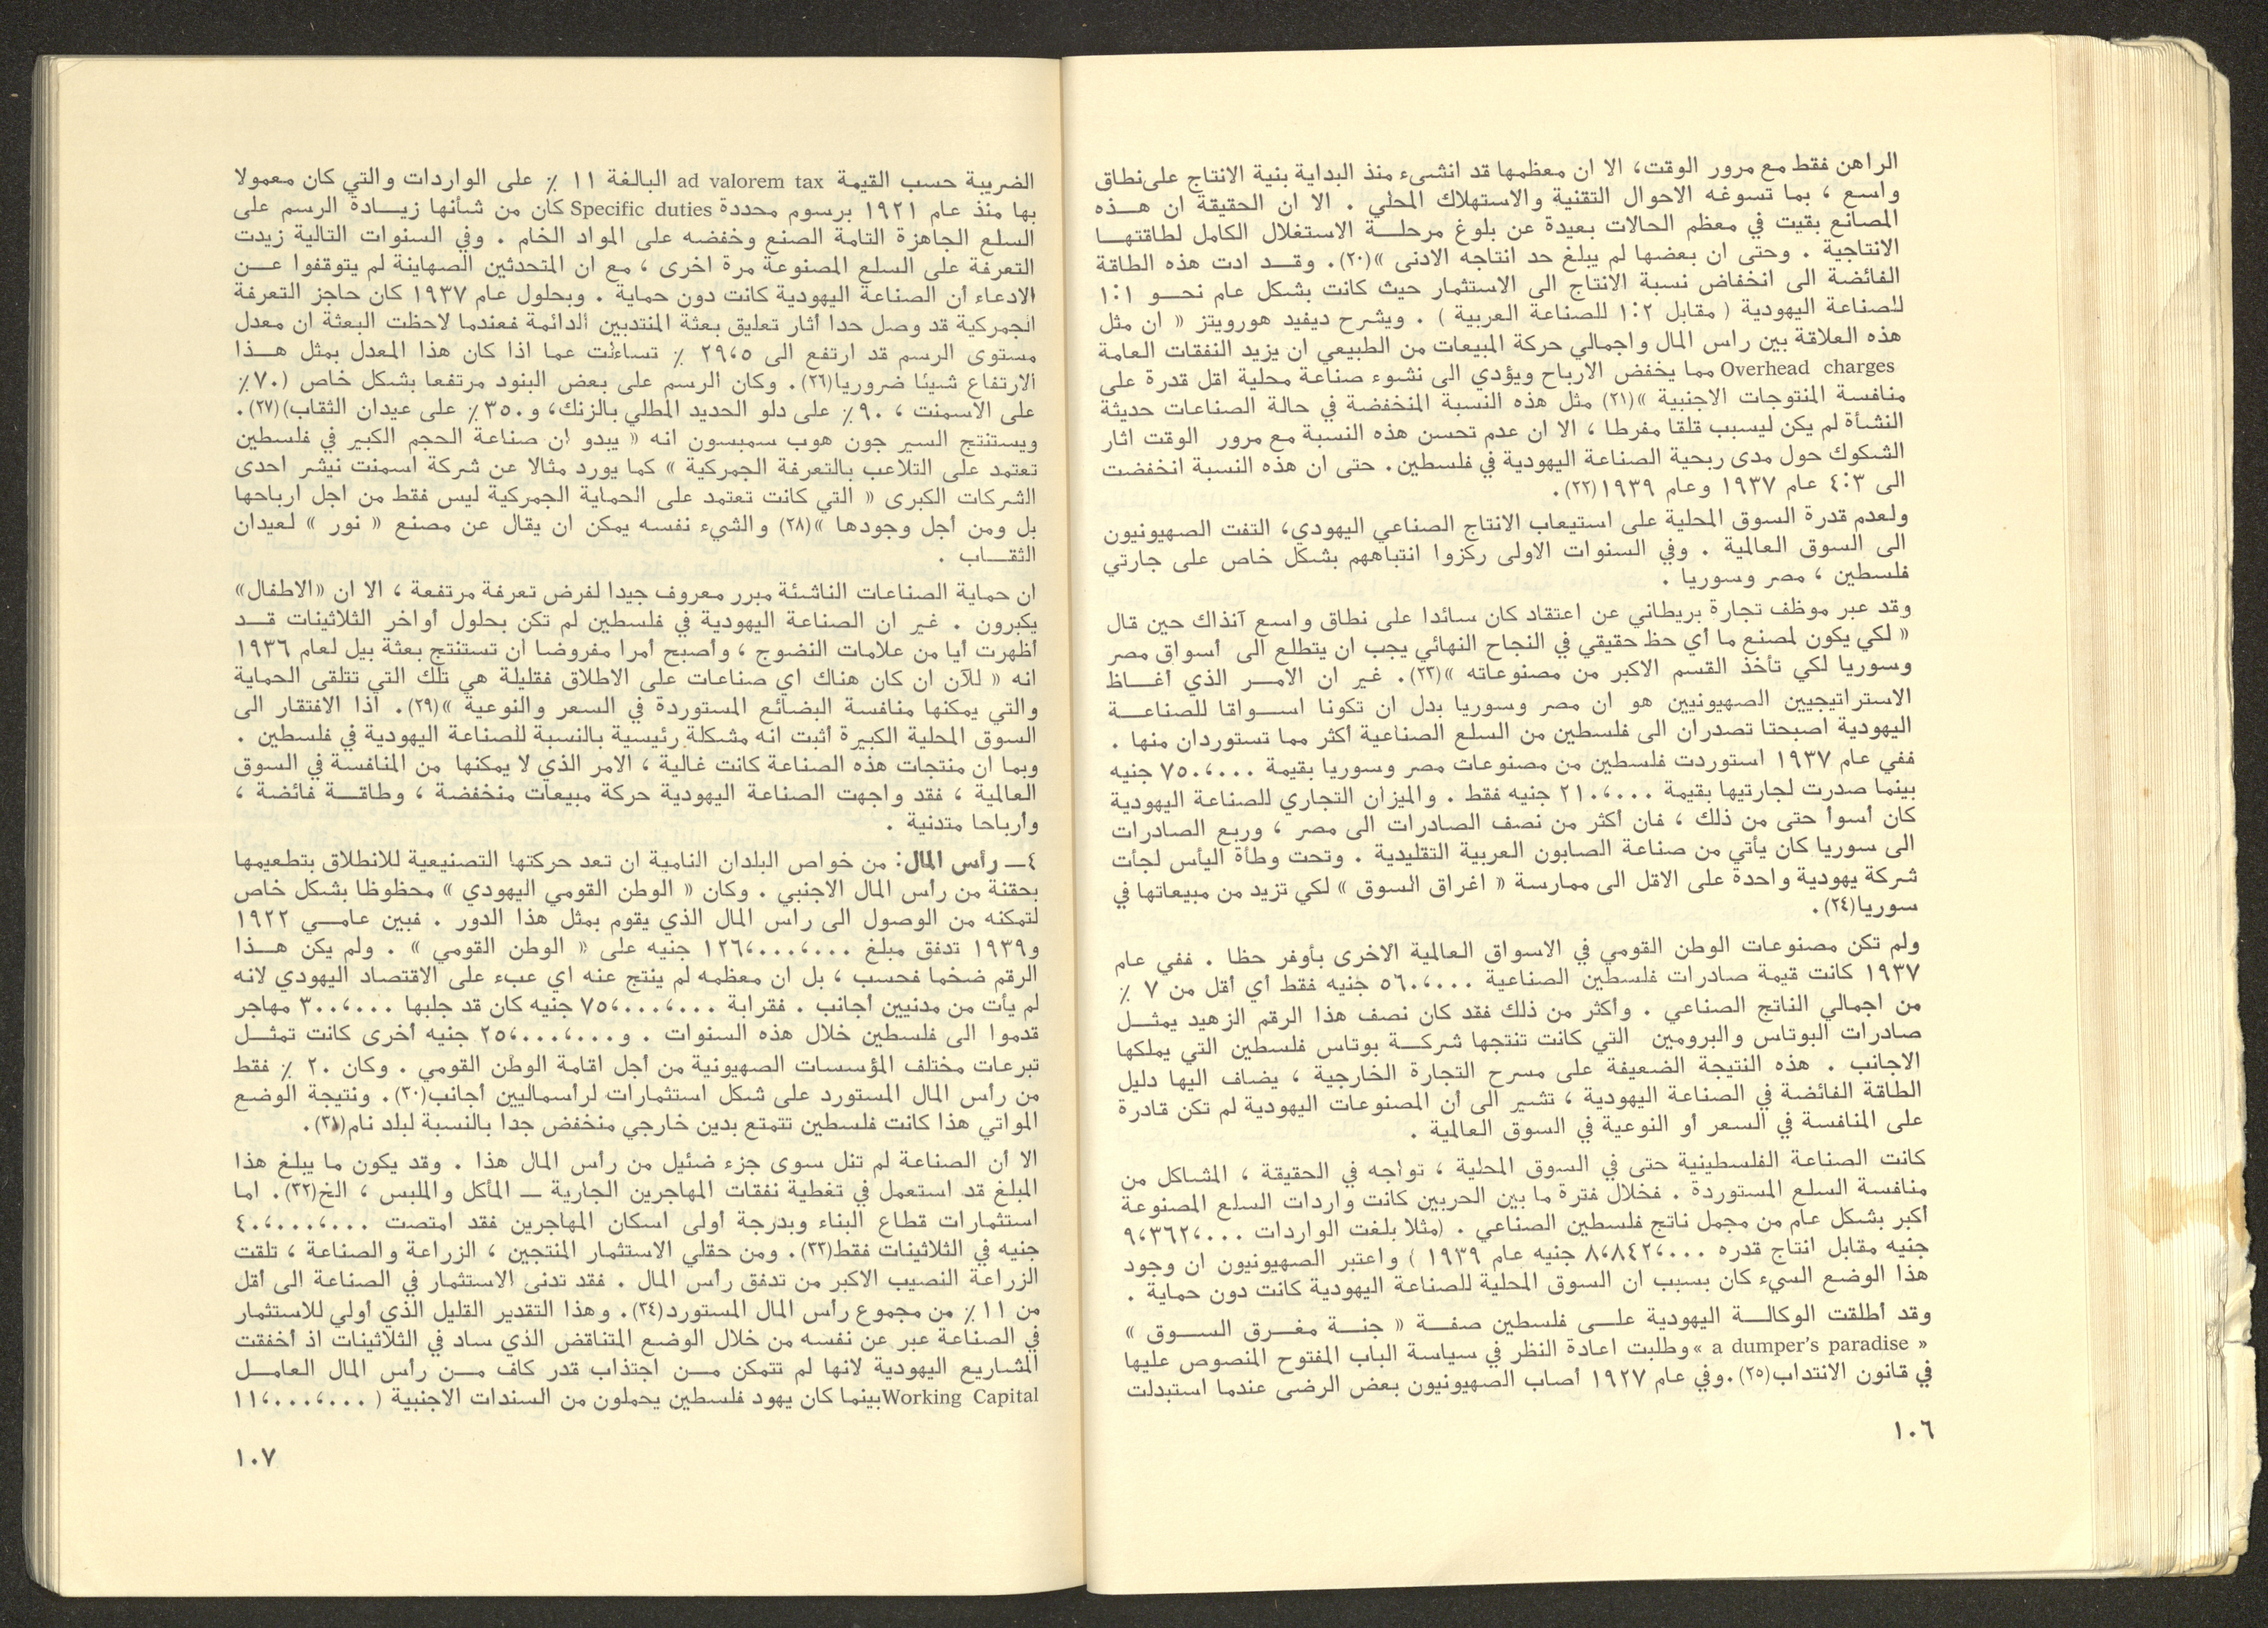 الراهن فقط مع مرور الوقت، الا ان معظمها قد انشىء منذ البداية بنية الانتاج على نطاق
واسع ، بما تسوغه الاحوال التقنية والاستهلاك المحلي . الا ان الحقيقة ان هـــذه
المصانع بقيت في معظم الحالات بعيدة عن بلوغ مرحلـــة الاستغلال الكامل لطاقتهـــا
الانتاجية . وحتى ان بعضها لم يبلغ حد انتاجه الادنى »(٢٠). وقـــد ادت هذه الطاقة
الفائضة الى انخفاض نسبة الانتاج الى الاستثمار حيث كانت بشكل عام نحـــو ١:١
للصناعة اليهودية ( مقابل ١:٢ للصناعة العربية ) . ويشرح ديفيد هورويتز « ان مثل
هذه العلاقة بين راس المال واجمالي حركة المبيعات من الطبيعي ان يزيد النفقات العامة
Overhead charges مما يخفض الارباح ويؤدي الى نشوء صناعة محلية اقل قدرة على
منافسة المنتوجات الاجنبية »(٢١) مثل هذه النسبة المنخفضة في حالة الصناعات حديثة
النشأة لم يكن ليسبب قلقا مفرطا ، الا ان عدم تحسن هذه النسبة مع مرور الوقت اثار
الشكوك حول مدى ربحية الصناعة اليهودية في فلسطين. حتى ان هذه النسبة انخفضت
الى ٤:٣ عام ١٩٣٧ وعام ١٩٣٩(٢٢).
ولعدم قدرة السوق المحلية على استيعاب الانتاج الصناعي اليهودي، التفت الصهيونيون
الى السوق العالمية . وفي السنوات الاولى ركزوا انتباههم بشكل خاص على جارتي
فلسطين ، مصر وسوريا .
وقد عبر موظف تجارة بريطاني عن اعتقاد كان سائدا على نطاق واسع آنذاك حين قال
« لكي يكون لمصنع ما أي حظ حقيقي في النجاح النهائي يجب ان يتطلع الى أسواق مصر
وسوريا لكي تأخذ القسم الاكبر من مصنوعاته »(٢٣). غير ان الامـــر الذي أغـــاظ
الاستراتيجيين الصهيونيين هو ان مصر وسوريا بدل ان تكونا اســـواقا للصناعـــة
اليهودية اصبحتا تصدران الى فلسطين من السلع الصناعية أكثر مما تستوردان منها .
ففي عام ١٩٣٧ استوردت فلسطين من مصنوعات مصر وسوريا بقيمة ٧٥٠،٠٠٠ جنيه
بينما صدرت لجارتيها بقيمة ٢١٠،٠٠٠ جنيه فقط . والميزان التجاري للصناعة اليهودية
كان أسوأ حتى من ذلك ، فان أكثر من نصف الصادرات الى مصر ، وربع الصادرات
الى سوريا كان يأتي من صناعة الصابون العربية التقليدية . وتحت وطأة اليأس لجأت
شركة يهودية واحدة على الاقل الى ممارسة « اغراق السوق » لكي تزيد من مبيعاتها في
سوريا(٢٤).
ولم تكن مصنوعات الوطن القومي في الاسواق العالمية الاخرى بأوفر حظا . ففي عام
١٩٣٧ كانت قيمة صادرات فلسطين الصناعية ٥٦٠،٠٠٠ جنيه فقط أي أقل من ٧ ٪
من اجمالي الناتج الصناعي . وأكثر من ذلك فقد كان نصف هذا الرقم الزهيد يمثـــل
صادرات البوتاس والبرومين التي كانت تنتجها شركـــة بوتاس فلسطين التي يملكها
الاجانب . هذه النتيجة الضعيفة على مسرح التجارة الخارجية ، يضاف اليها دليل
الطاقة الفائضة في الصناعة اليهودية ، تشير الى أن المصنوعات اليهودية لم تكن قادرة
على المنافسة في السعر أو النوعية في السوق العالمية .
كانت الصناعة الفلسطينية حتى في السوق المحلية ، تواجه في الحقيقة ، المشاكل من
منافسة السلع المستوردة . فخلال فترة ما بين الحربين كانت واردات السلع المصنوعة
أكبر بشكل عام من مجمل ناتج فلسطين الصناعي . (مثلا بلغت الواردات ٩،٣٦٢،٠٠٠
جنيه مقابل انتاج قدره ٨،٨٤٢،٠٠٠ جنيه عام ١٩٣٩ ) واعتبر الصهيونيون ان وجود
هذا الوضع السيء كان بسبب ان السوق المحلية للصناعة اليهودية كانت دون حماية .
وقد أطلقت الوكالـــة اليهودية علـــى فلسطين صفـــة « جنـــة مغـــرق الســـوق »
« a dumper's paradise » وطلبت اعادة النظر في سياسة الباب المفتوح المنصوص عليها
في قانون الانتداب(٢٥).وفي عام ١٩٢٧ أصاب الصهيونيون بعض الرضى عندما استبدلت
١٠٦
الضريبة حسب القيمة ad valorem tax البالغة ١١ ٪ على الواردات والتي كان معمولا
بها منذ عام ١٩٢١ برسوم محددة Specific duties كان من شأنها زيـــادة الرسم على
السلع الجاهزة التامة الصنع وخفضه على المواد الخام . وفي السنوات التالية زيدت
التعرفة على السلع المصنوعة مرة اخرى ، مع ان المتحدثين الصهاينة لم يتوقفوا عـــن
الادعاء أن الصناعة اليهودية كانت دون حماية . وبحلول عام ١٩٣٧ كان حاجز التعرفة
الجمركية قد وصل حدا أثار تعليق بعثة المنتدبين الدائمة فعندما لاحظت البعثة ان معدل
مستوى الرسم قد ارتفع الى ٢٩،٥ ٪ تساءلت عما اذا كان هذا المعدل بمثل هـــذا
الارتفاع شيئا ضروريا(٢٦). وكان الرسم على بعض البنود مرتفعا بشكل خاص (٧٠٪
على الاسمنت ، ٩٠٪ على دلو الحديد المطلي بالزنك، و٣٥٠٪ على عيدان الثقاب)(٢٧).
ويستنتج السير جون هوب سمبسون انه « يبدو ان صناعة الحجم الكبير في فلسطين
تعتمد على التلاعب بالتعرفة الجمركية » كما يورد مثالا عن شركة اسمنت نيشر احدى
الشركات الكبرى « التي كانت تعتمد على الحماية الجمركية ليس فقط من اجل ارباحها
بل ومن أجل وجودها »(٢٨) والشيء نفسه يمكن ان يقال عن مصنع « نور » لعيدان
الثقـــاب .
ان حماية الصناعات الناشئة مبرر معروف جيدا لفرض تعرفة مرتفعة ، الا ان «الاطفال»
يكبرون . غير ان الصناعة اليهودية في فلسطين لم تكن بحلول أواخر الثلاثينات قـــد
أظهرت أيا من علامات النضوج ، وأصبح أمرا مفروضا أن تستنتج بعثة بيل لعام ١٩٣٦
انه « للآن ان كان هناك اي صناعات على الاطلاق فقليلة هي تلك التي تتلقى الحماية
والتي يمكنها منافسة البضائع المستوردة في السعر والنوعية »(٢٩). اذا الافتقار الى
السوق المحلية الكبيرة أثبت انه مشكلة رئيسية بالنسبة للصناعة اليهودية في فلسطين .
وبما ان منتجات هذه الصناعة كانت غالية ، الامر الذي لا يمكنها من المنافسة في السوق
العالمية ، فقد واجهت الصناعة اليهودية حركة مبيعات منخفضة ، وطاقـــة فائضة ،
وأرباحا متدنية .
٤ـ رأس المال: من خواص البلدان النامية ان تعد حركتها التصنيعية للانطلاق بتطعيمها
بحقنة من رأس المال الاجنبي . وكان « الوطن القومي اليهودي » محظوظا بشكل خاص
لتمكنه من الوصول الى راس المال الذي يقوم بمثل هذا الدور . فبين عامـــي ١٩٢٢
و١٩٣٩ تدفق مبلغ ١٢٦،٠٠٠،٠٠٠ جنيه على « الوطن القومي » . ولم يكن هـــذا
الرقم ضخما فحسب ، بل ان معظمه لم ينتج عنه اي عبء على الاقتصاد اليهودي لانه
لم يأت من مدنيين أجانب . فقرابة ٧٥،٠٠٠،٠٠٠ جنيه كان قد جلبها ٣٠٠،٠٠٠ مهاجر
قدموا الى فلسطين خلال هذه السنوات . و٢٥،٠٠٠،٠٠٠ جنيه أخرى كانت تمثـــل
تبرعات مختلف المؤسسات الصهيونية من أجل اقامة الوطن القومي . وكان ٢٠ ٪ فقط
من رأس المال المستورد على شكل استثمارات لرأسماليين أجانب(٣٠). ونتيجة الوضع
المواتي هذا كانت فلسطين تتمتع بدين خارجي منخفض جدا بالنسبة لبلد نام(٣١).
الا أن الصناعة لم تنل سوى جزء ضئيل من رأس المال هذا . وقد يكون ما يبلغ هذا
المبلغ قد استعمل في تغطية نفقات المهاجرين الجارية ـ المأكل والملبس ، الخ(٣٢). اما
استثمارات قطاع البناء وبدرجة أولى اسكان المهاجرين فقد امتصت ٤٠،٠٠٠،٠٠٠
جنيه في الثلاثينات فقط(٣٣). ومن حقلي الاستثمار المنتجين ، الزراعة والصناعة ، تلقت
الزراعة النصيب الاكبر من تدفق رأس المال . فقد تدنى الاستثمار في الصناعة الى أقل
من ١١ ٪ من مجموع رأس المال المستورد(٣٤). وهذا التقدير القليل الذي أولي للاستثمار
في الصناعة عبر عن نفسه من خلال الوضع المتناقض الذي ساد في الثلاثينات اذ أخفقت
المشاريع اليهودية لانها لم تتمكن مـــن اجتذاب قدر كاف مـــن رأس المال العامـــل
Working Capital بينما كان يهود فلسطين يحملون من السندات الاجنبية ( ١١،٠٠٠،٠٠٠
١٠٧